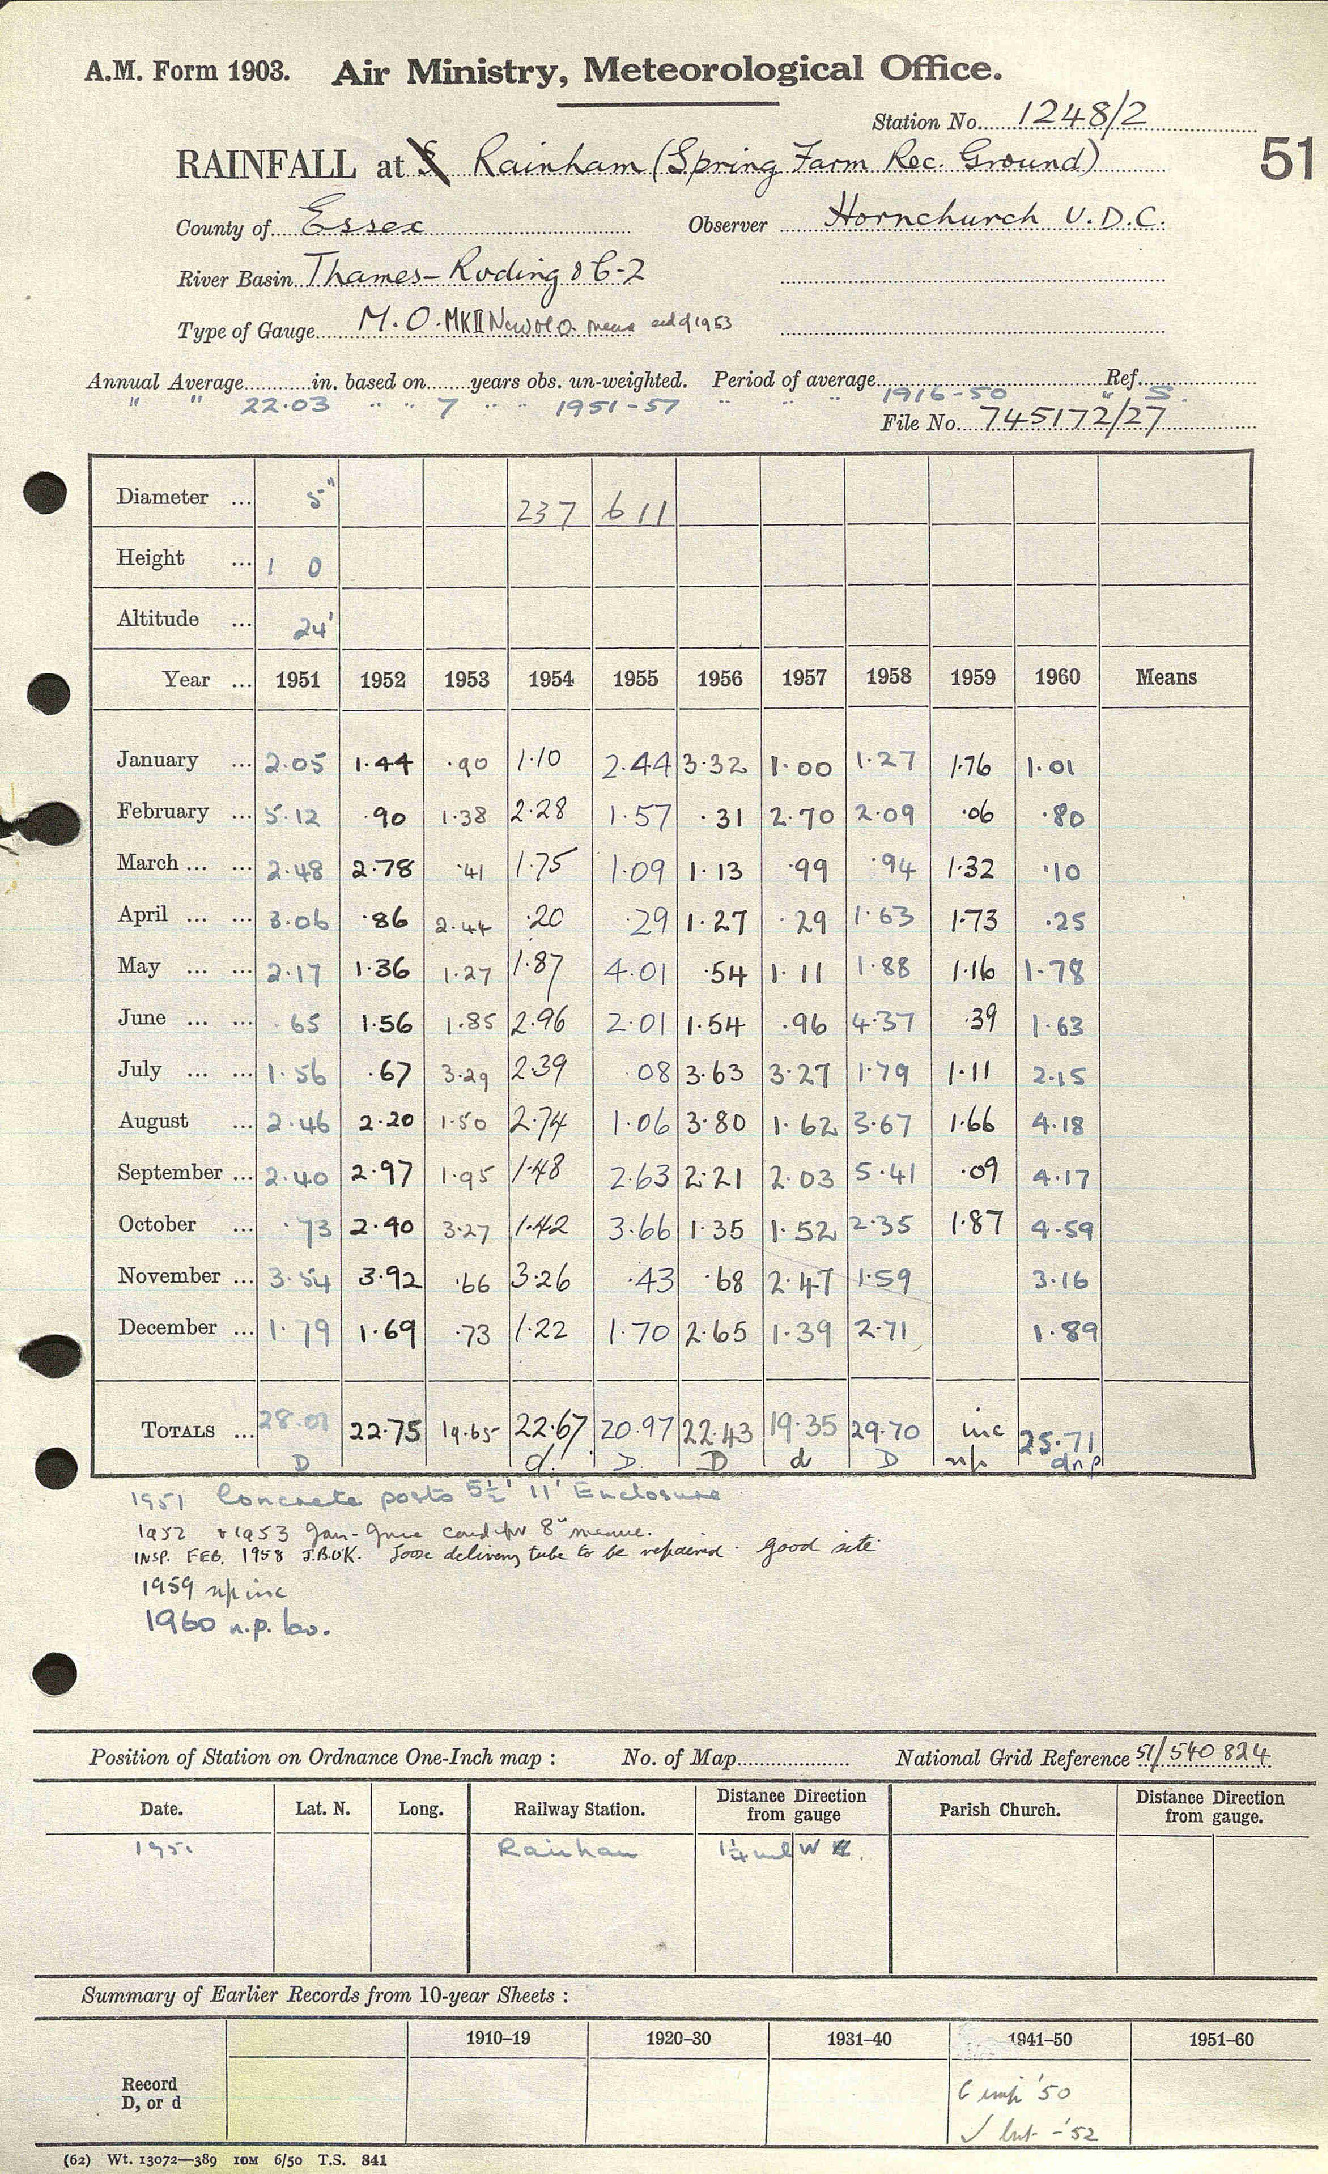 A.M. Form 1903. Air Ministry, Meteorological Office.
Station No. 1248/2
RAINFALL at Rainham (Spring Farm Rec. Ground)
51
County of Essex Observer Hornchurch U.D.C.
River Basin Thames-Roding 86-2
Type of Gauge M.O. MKII New M.O. meas 1953
Annual Average in. based on years obs. un-weighted. Period of average Ref.
" " 22.03 " " 7 " " 1951-57 " " " 1916-50 " S.
File No. 745172/27
Diameter ... 5" 237 611
Height ... 1 0
Altitude ... 24'
Year ... 1951 1952 1953 1954 1955 1956 1957 1958 1959 1960 Means
January ... 2.05 1.44 .90 1.10 2.44 3.32 1.00 1.27 1.76 1.01
February ... 5.12 .90 1.38 2.28 1.57 .31 2.70 2.09 .06 .80
March ... ... 2.48 2.78 .41 1.75 1.09 1.13 .99 .94 1.32 .10
April ... ... 3.06 .86 2.44 .20 .29 1.27 .29 1.63 1.73 .25
May ... ... 2.17 1.36 1.27 1.87 4.01 .54 1.11 1.88 1.16 1.78
June ... ... .65 1.56 1.85 2.96 2.01 1.54 .96 4.37 .39 1.63
July ... ... 1.56 .67 3.29 2.39 .08 3.63 3.27 1.79 1.11 2.15
August ... 2.46 2.20 1.50 2.74 1.06 3.80 1.62 3.67 1.66 4.18
September ... 2.40 2.97 1.95 1.48 2.63 2.21 2.03 5.41 .09 4.17
October ... .73 2.90 3.27 1.42 3.66 1.35 1.52 2.35 1.87 4.59
November ... 3.54 3.92 .66 3.26 .43 .68 2.47 1.59 3.16
December ... 1.79 1.69 .73 1.22 1.70 2.65 1.39 2.71 1.89
TOTALS ... 28.01 22.75 19.65 22.67 20.97 22.43 19.35 29.70 inc 25.71
D d. D. D d D np dnp
1951 Concrete posts 5½' 11' Enclosure
1952 & 1953 Jan-June for 8" measure.
INSP. FEB. 1958 J.B.U.K. Loose delivery tube to be repaired. good site
1959 np inc
1960 n.p. lav.
Position of Station on Ordnance One-Inch map : No. of Map National Grid Reference 51/540 824
Date. Lat. N. Long. Railway Station. Distance Direction from gauge Parish Church. Distance Direction from gauge.
1951 Rainham 1¼ ml W
Summary of Earlier Records from 10-year Sheets :
1910-19 1920-30 1931-40 1941-50 1951-60
Record
D, or d
'50
but - '52
(62) Wt. 13072—389 10M 6/50 T.S. 841